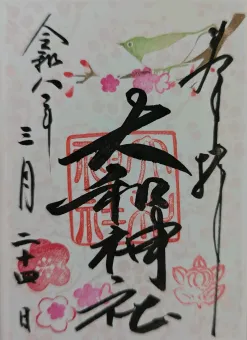 奉拝
大和神社
令和八年
三月二十四日